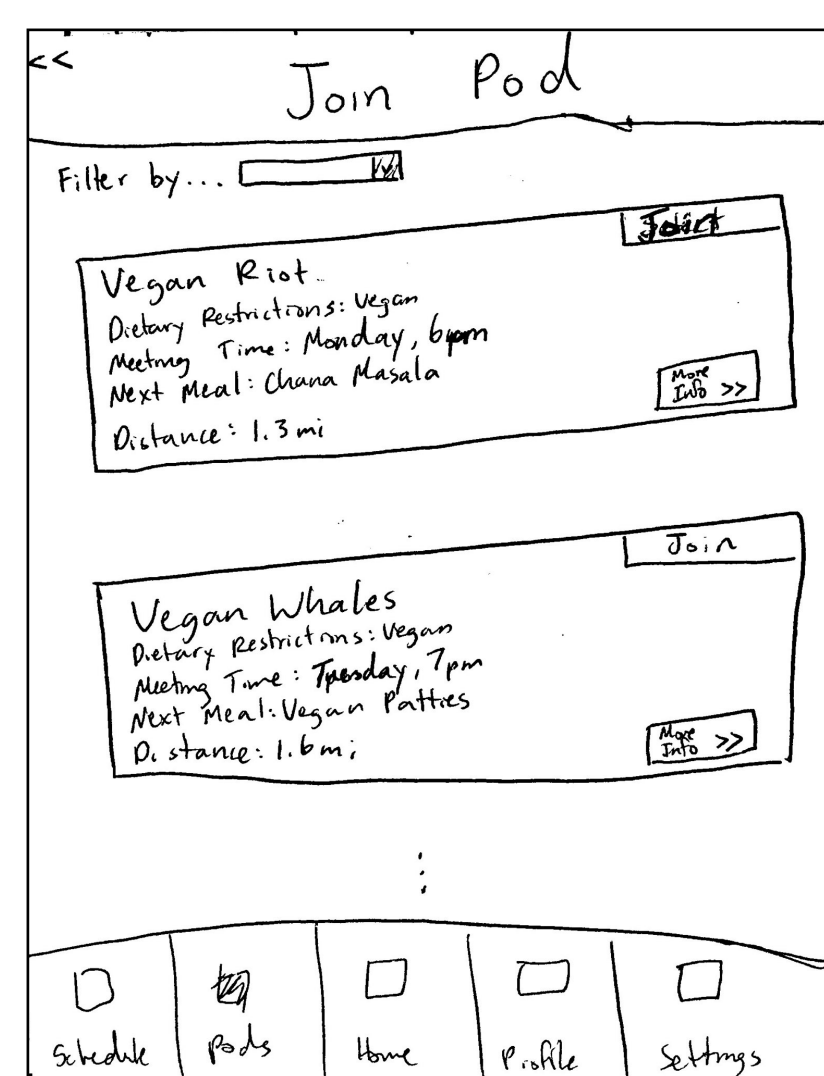 <<
Join Pod
Filter by...
Join
Vegan Riot
Dietary Restrictions: Vegan
Meeting Time: Monday, 6pm
Next Meal: Chana Masala
Distance: 1.3 mi
More
Info >>
Join
Vegan Whales
Dietary Restrictions: Vegan
Meeting Time: Tuesday, 7pm
Next Meal: Vegan Patties
Distance: 1.6 mi
More
Info >>
Schedule Pods Home Profile Settings